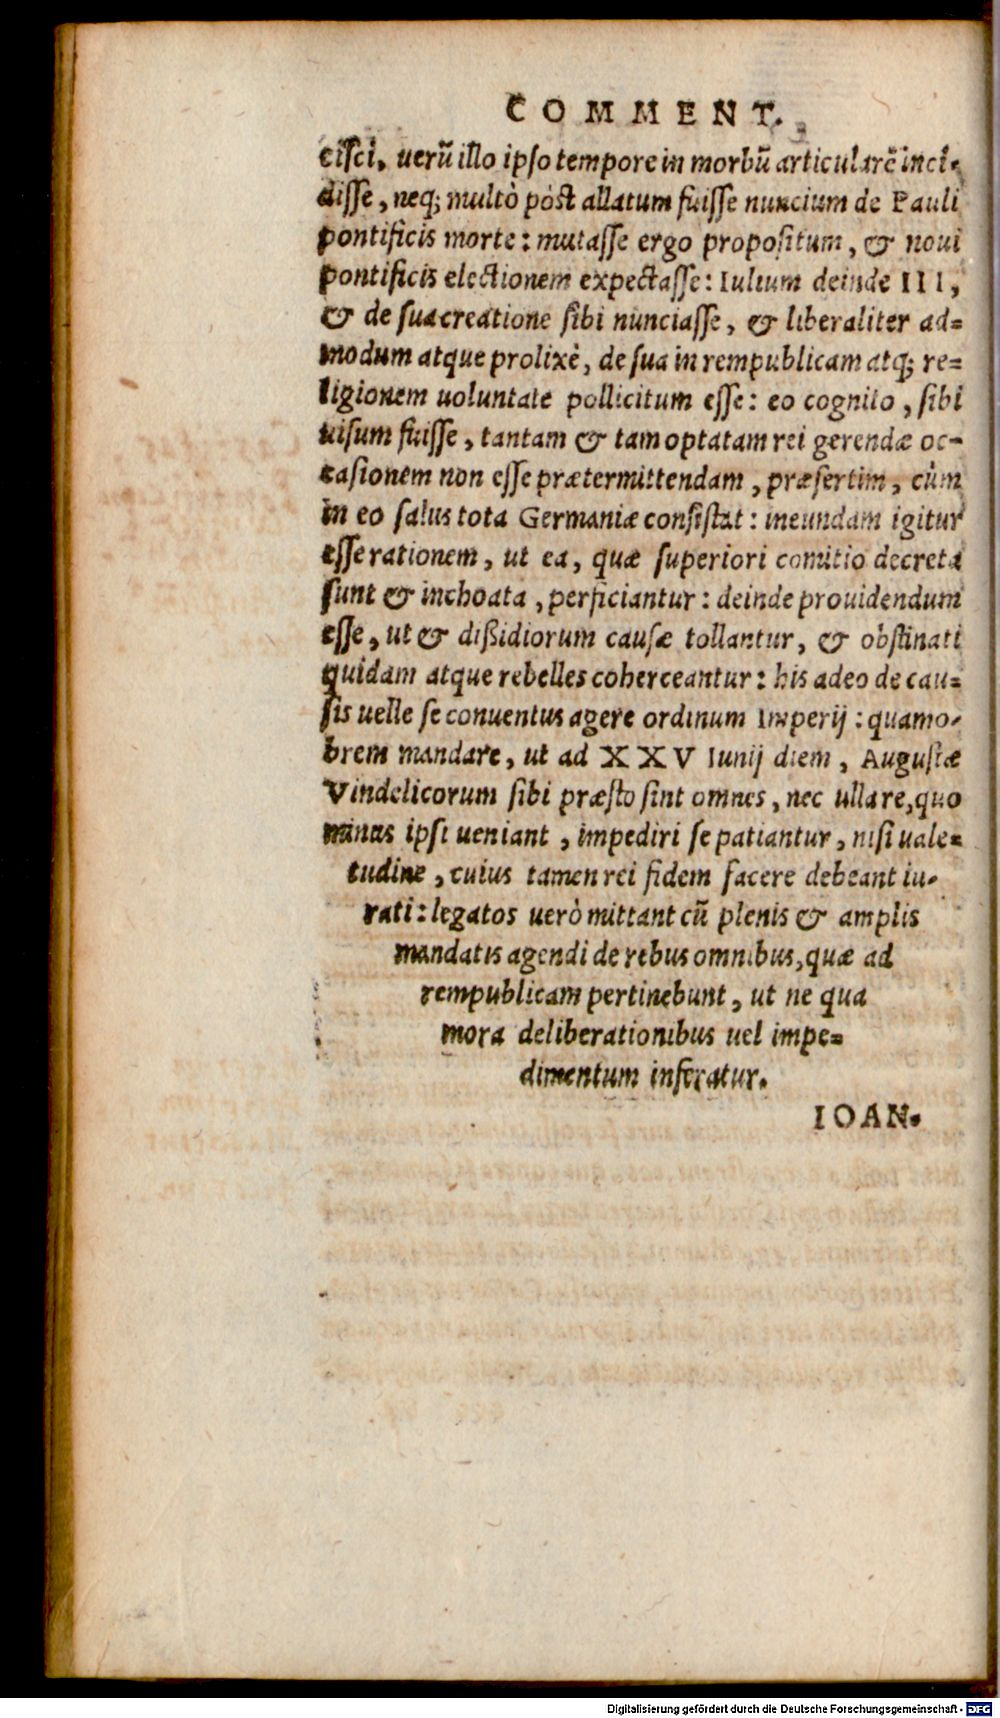 COMMENT.
cisci, uerũ illo ipso tempore in morbũ articularẽ inci-
disse, neq; multò pòst allatum fuisse nuncium de Pauli
pontificis morte: mutasse ergo propositum, & noui
pontificis electionem expectasse: Iulium deinde III,
& de sua creatione sibi nunciasse, & liberaliter ad=
modum atque prolixè, de sua in rempublicam atq; re=
ligionem uoluntate pollicitum esse: eo cognito, sibi
uisum fuisse, tantam & tam optatam rei gerendæ oc-
casionem non esse prætermittendam, præsertim, cùm
in eo salus tota Germaniæ consistat: ineundam igitur
esse rationem, ut ea, quæ superiori comitio decreta
sunt & inchoata, perficiantur: deinde prouidendum
esse, ut & dißidiorum causæ tollantur, & obstinati
quidam atque rebelles coherceantur: his adeo de cau=
sis uelle se conuentus agere ordinum Imperij: quamo-
brem mandare, ut ad XXV Iunij diem, Augustæ
Vindelicorum sibi præsto sint omnes, nec ulla re, quo
minus ipsi ueniant, impediri se patiantur, nisi uale=
tudine, cuius tamen rei fidem facere debeant iu-
rati: legatos uerò mittant cũ plenis & amplis
mandatis agendi de rebus omnibus, quæ ad
rempublicam pertinebunt, ut ne qua
mora deliberationibus uel impe=
dimentum inferatur.
IOAN.
Digitalisierung gefördert durch die Deutsche Forschungsgemeinschaft - DFG